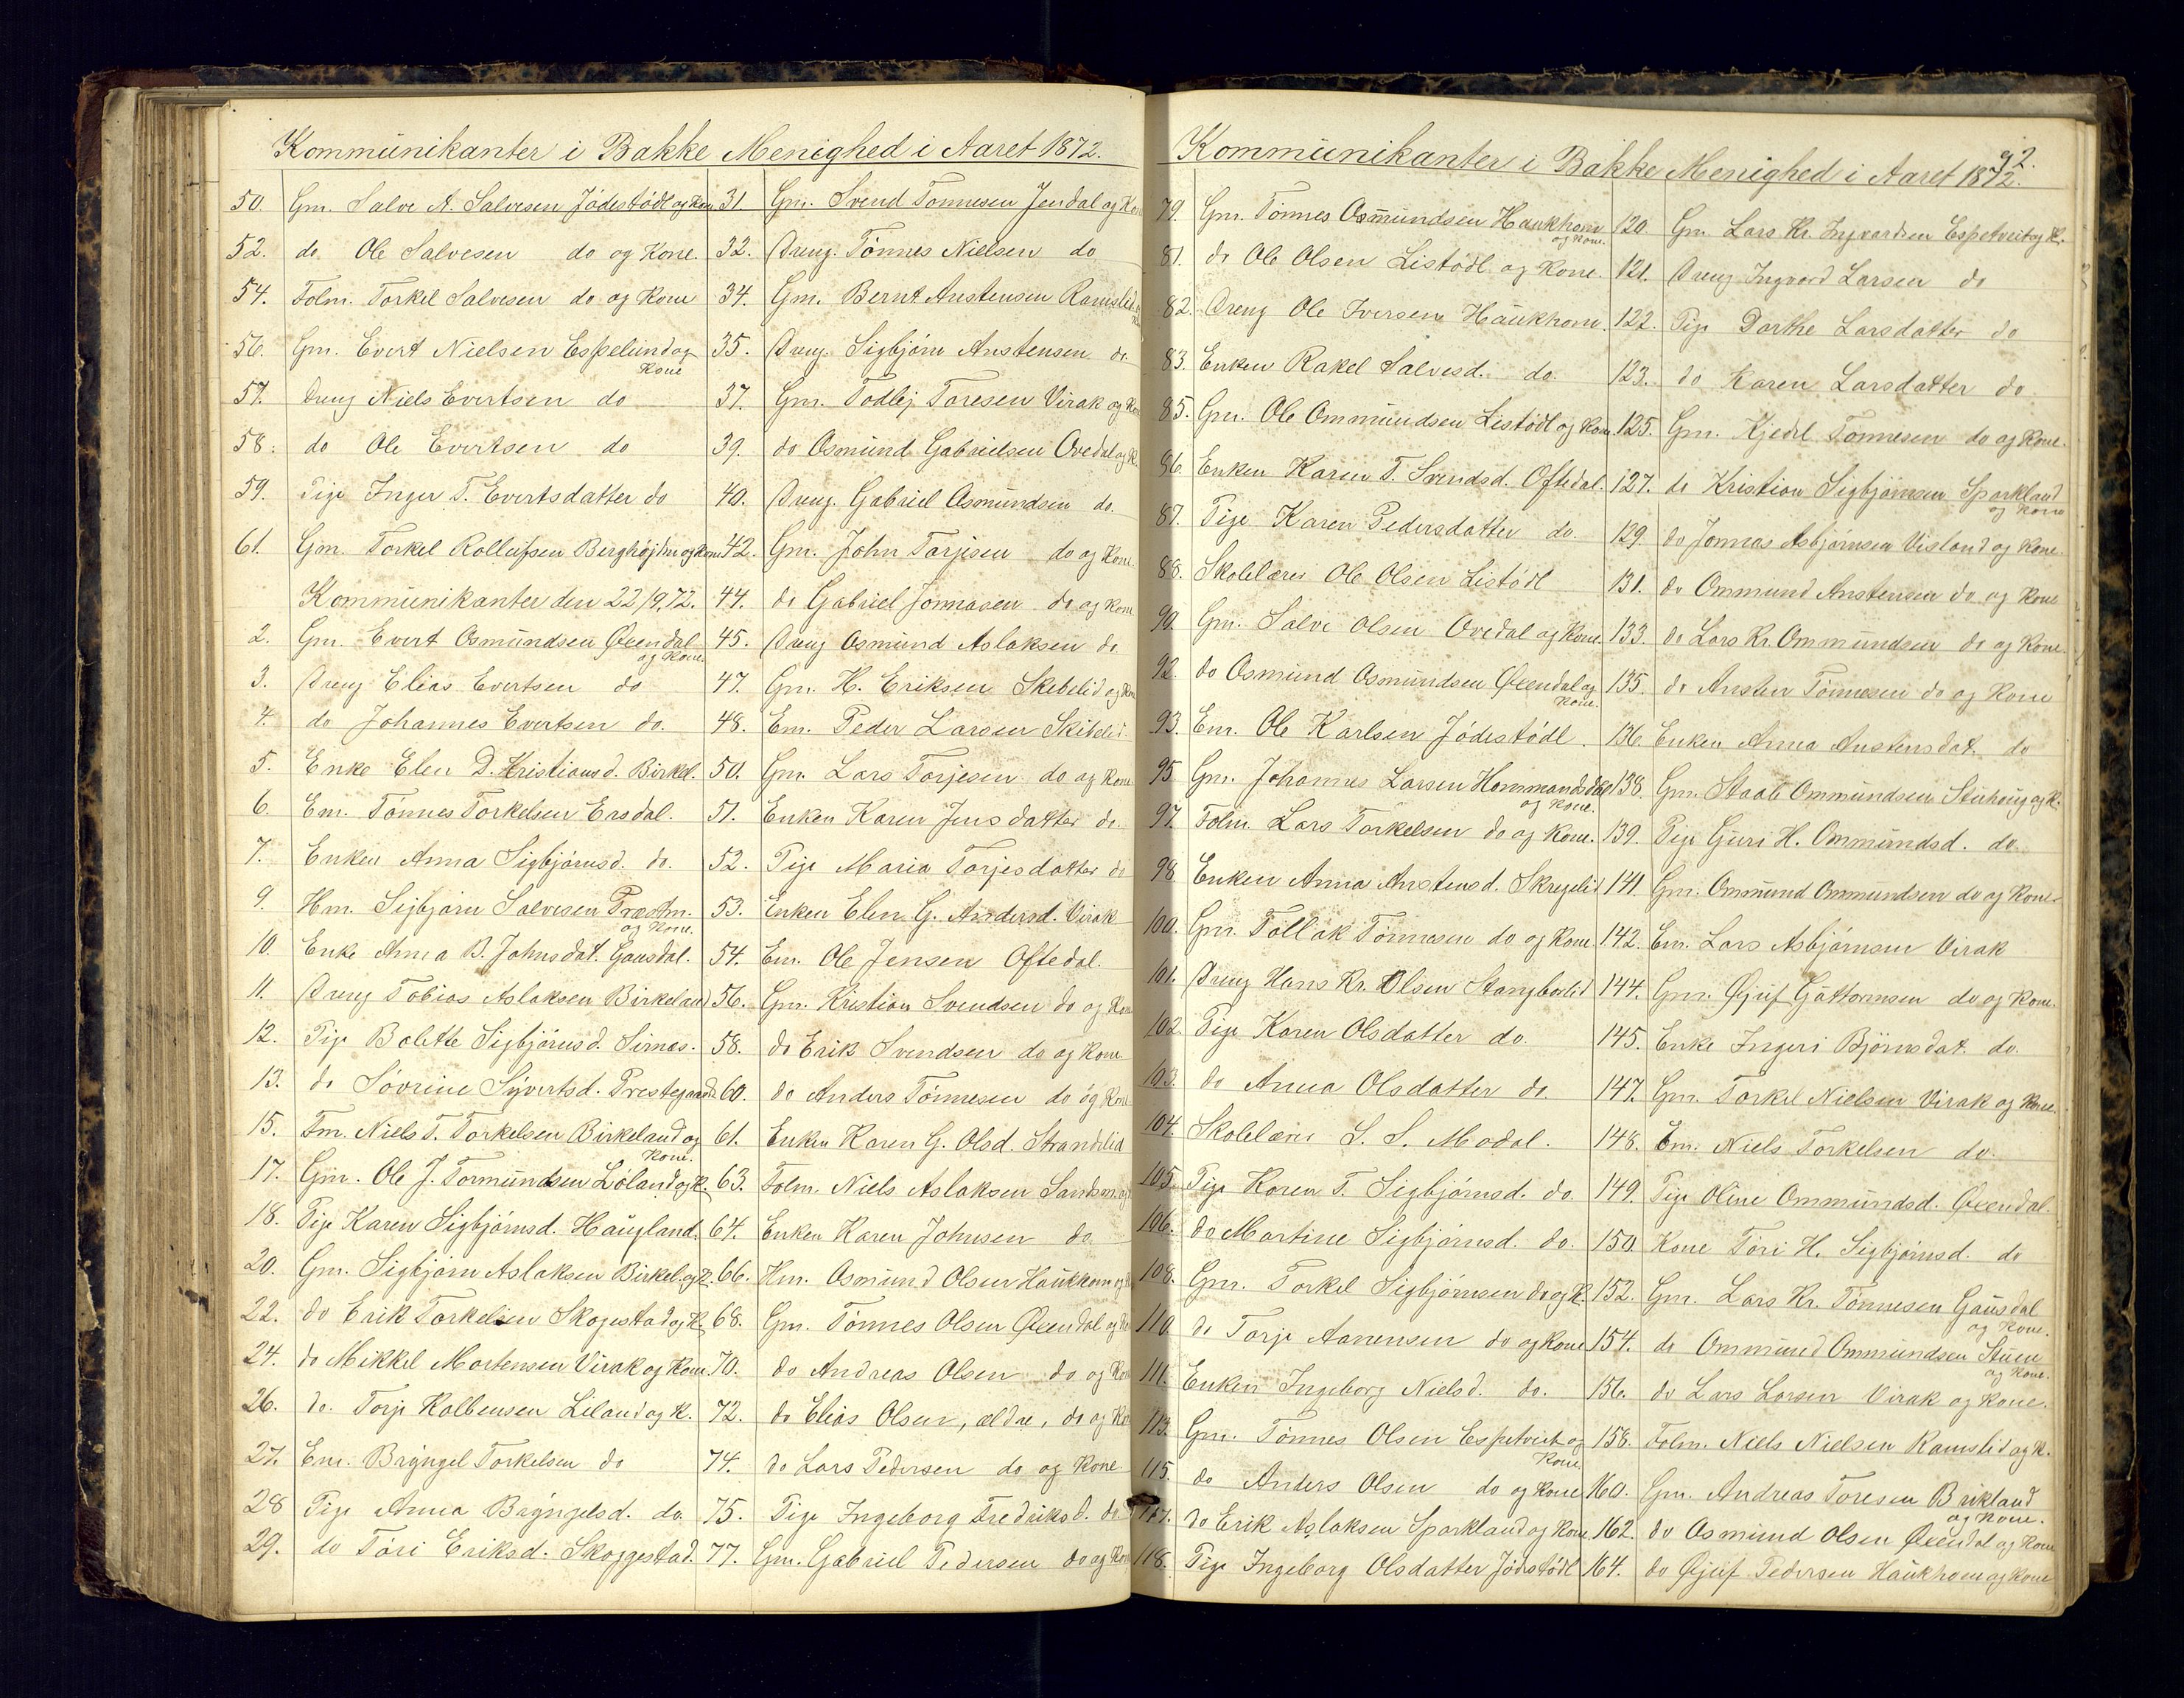 Kommunikanter i Bakke Menighed i Aaret 1872.
50. Gm. Salve A. Salvesen Jödestödl og Kone
52. do Ole Salvesen do og Kone.
54. Folm. Torkel Salvesen do og Kone
56. Gm. Evert Nielsen Espelund og
Kone
57. Dreng Niels Evertsen do
58. do Ole Evertsen do
59. Pige Inger T. Evertsdatter do
61. Gm. Torkel Rolleifsen Berghøjhn og Kone
Kommunikanter den 22/9, 72.
2. Gm. Evert Osmundsen Øvendal
og Kone.
3. Dreng Elias Evertsen do
4. do Johannes Evertsen do.
5. Enke Elen D. Kristiansd. Birkel.
6. Em. Tönnes Torkelsen Ersdal.
7. Enken Anna Sigbjörnsd. do.
9. Hm. Sigbjörn Salvesen Præstm.
og Kone.
10. Enke Anna B. Johnsdat. Gausdal.
11. Dreng Tobias Aslaksen Birkeland
12. Pige Bolette Sigbjörnsd. Sirnæs.
13. do Sövrine Syvertsd. Prestegaard
15. Fm. Niels T. Torkelsen Birkeland og
Kone.
17. Gm. Ole J. Tormundsen Löland og K.
18. Pige Karen Sigbjörnsd. Haugland.
20. Gm. Sigbjörn Aslaksen Birkel. og K.
22. do Erik Torkelsen Skogestad og K.
24. do Mikkel Mortensen Virak og Kone.
26. do. Torje Kolbensen Leland og K.
27. Em. Bryngel Torkelsen do
28 Pige Anna Bryngelsd. do.
29. do Töri Eriksd. Skoggestad.
31. Gm. Svend Tönnesen Jendal og Kone
32. Dreng. Tönnes Nielsen do
34. Gm. Bernt Anstensen Ramslid
35. Dreng. Sigbjörn Anstensen do
37. Gm. Todlej Toresen Virak og
39. do Osmund Gabrielsen Ovedal og K.
40. Dreng. Gabriel Osmundsen do.
42. Gm. John Torjesen do og Kone.
44. do Gabriel Jonnasen do og Kone
45. Dreng Osmund Aslaksen do.
47. Gm. H. Eriksen Skebelid og Kone
48. Em. Peder Larsen Skibelid.
50. Gm. Lars Torjesen do og Kone
51. Enken Karen Jensdatter do.
52. Pige Maria Torjesdatter do
53. Enken Elen G. Andersd. Virak
54. Em. Ole Jensen Oftedal.
56. Gm. Kristian Svendsen do og Kone
58. do Erik Svendsen do og Kone
60. do Anders Tönnesen do og Kone
61. Enken Karen G. Olsd. Strandlid
63. Folm. Niels Aslaksen Sandsm. og
64. Enken Karen Johnsen do
66. Hm. Osmund Olsen Haukhom og
68. Gm. Tönnes Olsen Øvendal og
70. do Andreas Olsen do og
72. do Elias Olsen, ældre, do og
74. do Lars Pedersen do og Kone
75. Pige Ingeborg Fredriksd. do.
77. Gm. Gabriel Pedersen do og Kone
Kommunikanter i Bakke Menighed i Aaret 1872.
92.
79. Gm. Tönnes Osmundsen Haukhom
og Kone.
81. do Ole Olsen Listödl og Kone.
82. Dreng Ole Iversen Haukhom.
83. Enken Rakel Salvesd. do.
85. Gm. Ole Ommundsen Listödl og Kone.
86. Enken Karen T. Svendsd. Oftedal.
87. Pige Karen Pedersdatter do.
88. Skolelærer Ole Olsen Listödl
90. Gm. Salve Olsen Ovedal og Kone.
92. do Osmund Osmundsen Øvendal og
Kone.
93. Em. Ole Karlsen Jödestödl.
95. Gm. Johannes Larsen Hommandsdal
og Kone.
97. Folm. Lars Torkelsen do og Kone.
98. Enken Anna Anstensd. Skregelid
100. Gm. Tollak Tönnesen do og Kone
101. Dreng Hans Kr. Olsen Stangborlid
102. Pige Karen Olsdatter do.
103. do Anna Olsdatter do.
104. Skolelærer S. S. Modal.
105. Pige Karen T. Sigbjörnsd. do.
106. do Martine Sigbjörnsd. do.
108. Gm. Torkel Sigbjörnsen do og K.
110. do Torje Aanensen do og Kone
111. Enken Ingeborg Nielsd. do.
113. Gm. Tönnes Olsen Espetveit og
Kone.
115. do Anders Olsen do og Kone
117. do Erik Aslaksen Sparkland og Kone
118. Pige Ingeborg Olsdatter Jödestödl
120 Gm. Lars Kr. Ingvardsen Espetveit og K.
121. Dreng Ingvard Larsen do
122. Pige Dorthe Larsdatter do
123. do Karen Larsdatter do.
125. Gm. Kjedel Tönnesen do og Kone.
127. do Kristian Sigbjörnsen Sparkland
og Kone
129. do Jonnas Asbjörnsen Visland og Kone.
131. do Ommund Anstensen do og Kone
133. do Lars Kr. Ommundsen do og Kone.
135. do Ansten Tönnesen do og Kone
136. Enken Anna Anstensdat. do
138. Gm. Staale Ommundsen Stuhoug og K.
139. Pige Guri H. Ommundsd. do.
141. Gm. Ommund Ommundsen do og Kone
142. Em. Lars Asbjörnsen Virak
144. Gm. Øjuf Guttormsen do og Kone.
145. Enke Ingeri Björnsdat. do.
147. Gm. Torkel Nielsen Virak og Kone.
148. Em. Niels Torkelsen do.
149. Pige Oline Ommundsd. Øvendal.
150. Kone Töri H. Sigbjörnsd. do
152. Gm. Lars Kr. Tönnesen Gausdal
og Kone.
154. do Ommund Ommundsen Stuen
og Kone.
156. do Lars Larsen Virak og Kone.
158. Folm. Niels Nielsen Ramslid og K.
160. Gm. Andreas Toresen Birkland
og Kone.
162. do Osmund Olsen Øvendal og Kone
164. do Øjuf Pedersen Haukhom og Kone